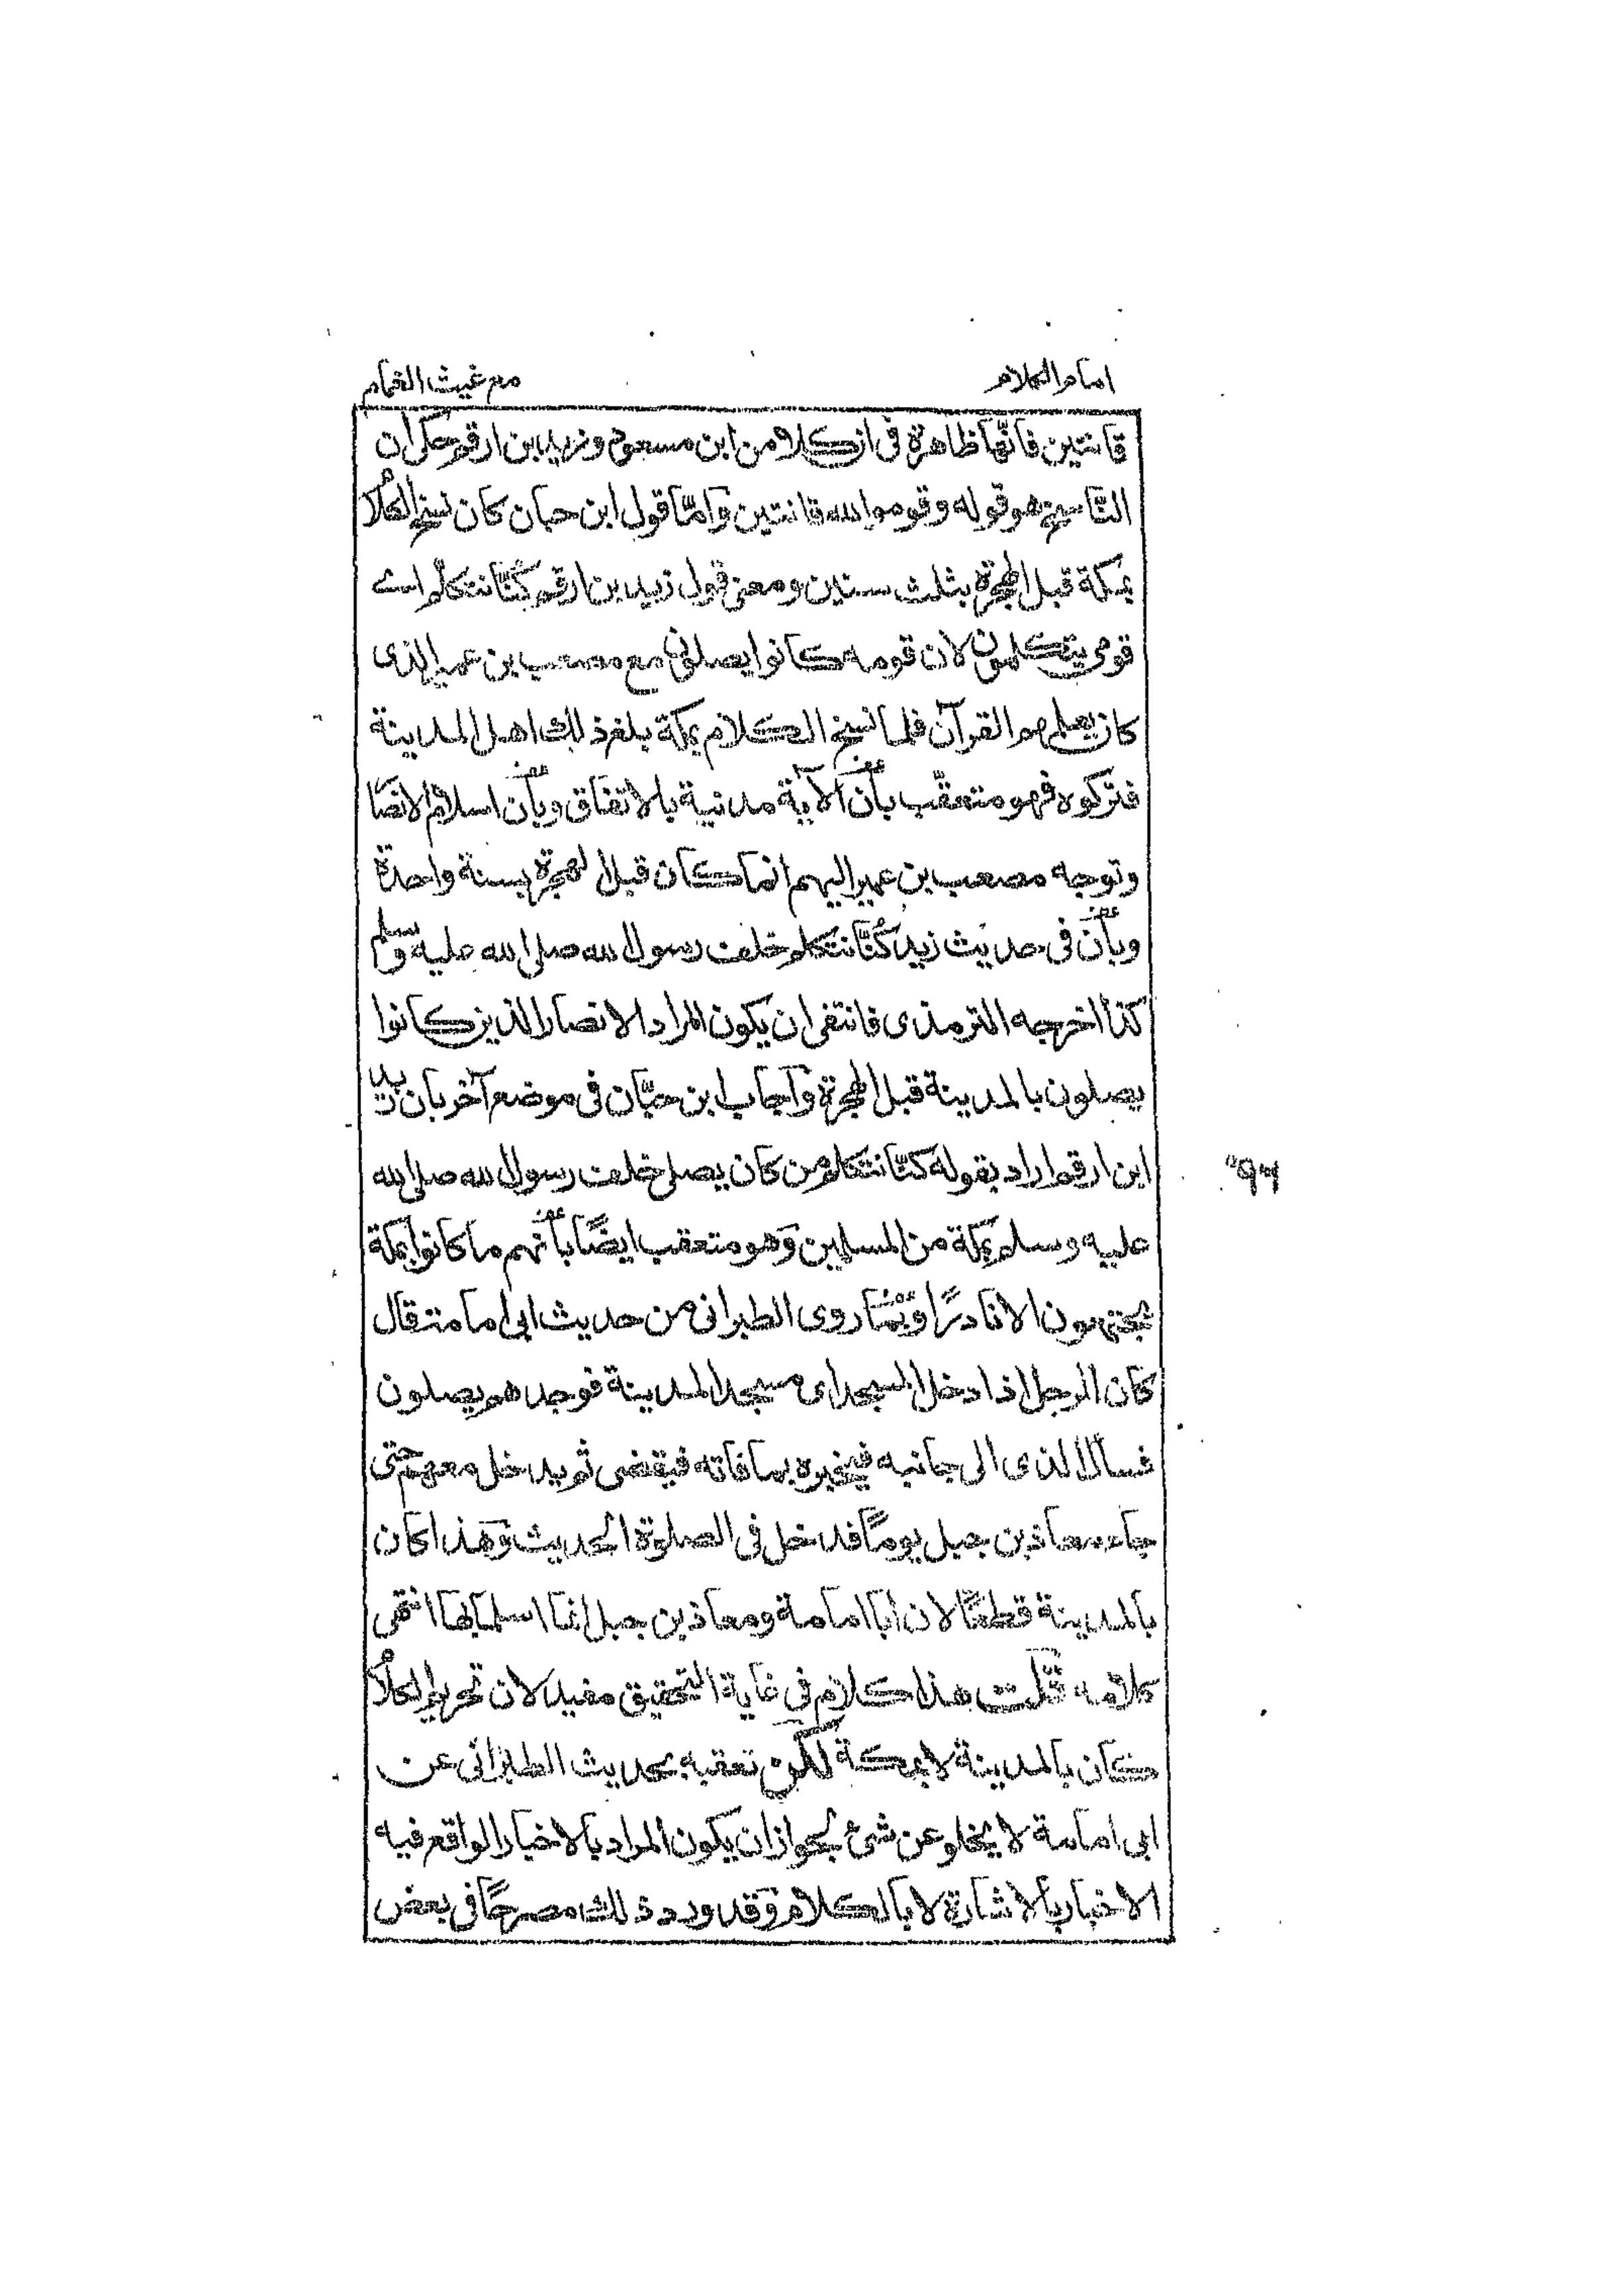 امام الكلام
مع غيث الغمام
قانتين فانها ظاهرة فى ان كلا من ابن مسعود وزيد بن ارقم حكى ان
الناسخ هو قوله وقوموا لله قانتين وامّا قول ابن حبان كان نسخ الكلام
بمكة قبل الهجرة بثلث سنين ومعنى قول زيد بن ارقم كُنّا نتكلم اے
قومى يتكلمون لان قومه كانوا يصلون مع مصعب بن عمير الذى
كان يعلمهم القرآن فلما نسخ الكلام بمكة بلغ ذلك اهل المدينة
فتركوه فهو متعقّب بأن الآية مدنية بالاتفاق وبأن اسلام الانصا
وتوجه مصعب بن عمير اليهم انما كان قبل الهجرة بسنة واحدة
وبأن فى حديث زيد كُنّا نتكلم خلف رسول الله صلى الله عليه وسلم
كذا اخرجه الترمذى فانتفى ان يكون المراد الانصار الذين كانوا
يصلون بالمدينة قبل الهجرة وأجاب ابن حبّان فى موضع آخر بان زيد
ابن ارقم اراد بقوله كنّا نتكلم من كان يصلى خلف رسول الله صلى الله
عليه وسلم بمكة من المسلمين وهو متعقب ايضًا بأنهم ما كانوا بمكة
يجتمعون الا نادرًا وبما روى الطبرانى من حديث ابى امامة قال
كان الرجل اذا دخل المسجد اى مسجد المدينة فوجدهم يصلون
فسأل الذى الى جانبه فيخبره بما فاته فيقضى ثم يدخل معهم حتى
جاء معاذ بن جبل يومًا فدخل فى الصلوة الحديث وهذا كان
بالمدينة قطعًا لان ابا امامة ومعاذ بن جبل انما اسلما بها انتهى
كلامه قُلت هذا كلام فى غاية التحقيق مفيد لان تحريم الكلام
كان بالمدينة لا بمكة لكن تعقبه بحديث الطبرانى عن
ابى امامة لا يخلو عن شئ لجواز ان يكون المراد بالاخبار الواقع فيه
الاخبار بالاشارة لا بالكلام وقد ورد ذلك مصرحًا فى بعض